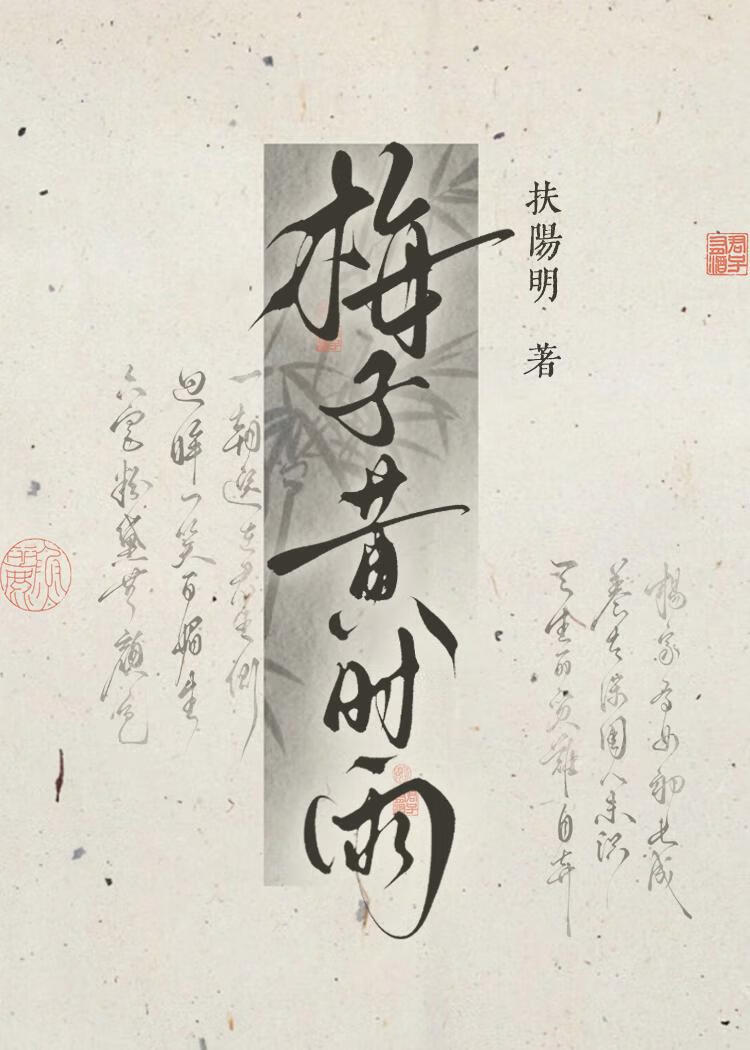 楊家有女初長成
養在深閨人未識
天生麗質難自弃
扶陽明 著
梅子黄时雨
一朝選在君王側
回眸一笑百媚生
六宮粉黛無顏色